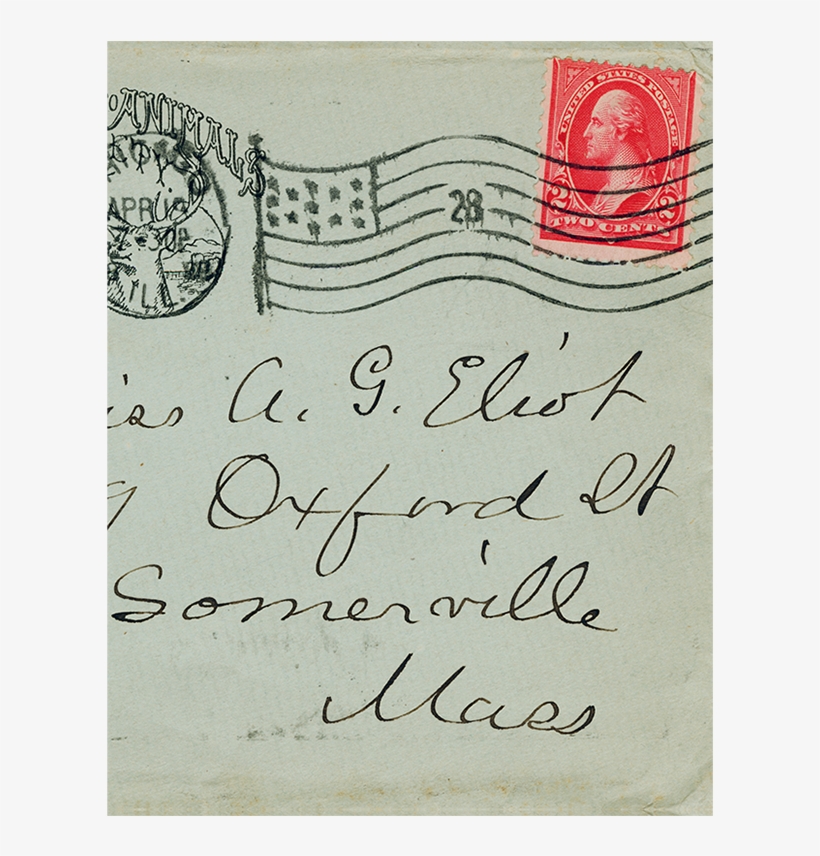 ANIMALS
APR 18
ILL.
28
UNITED STATES POSTAGE
2 2
TWO CENTS
iss A. G. Eliot
9 Oxford St
Somerville
Mass